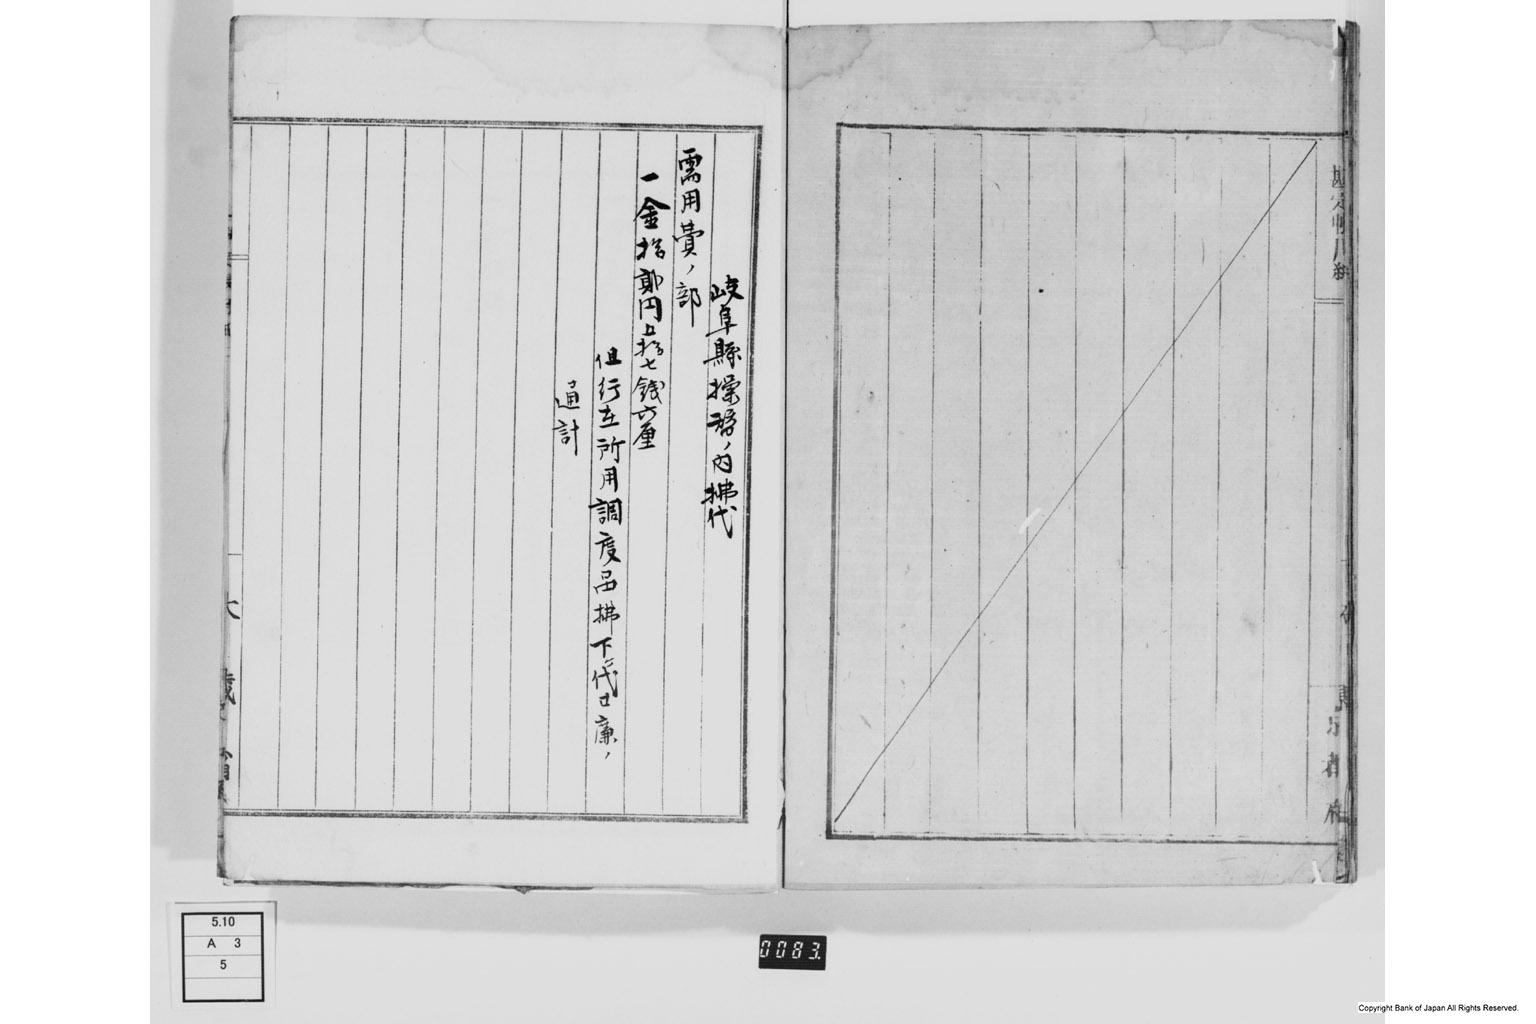 岐阜縣操務ノ内拂代
需用費ノ部
一金拾貳円五拾七錢六厘
但行在所用調度品拂下代口廉ノ
通計
大藏省
東京都府
5.10
A 3
5
0083.
Copyright Bank of Japan All Rights Reserved.